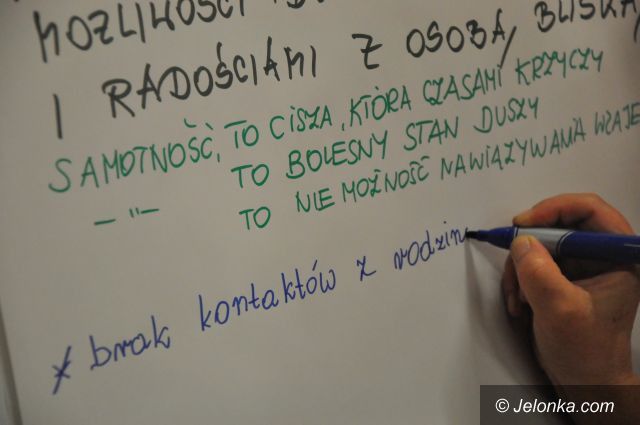 MOŻLIWOŚCI
I RADOŚCIAMI Z OSOBĄ BLISKĄ,
SAMOTNOŚĆ, TO CISZA, KTÓRA CZASAMI KRZYCZY
— "— TO BOLESNY STAN DUSZY
TO NIE MOŻNOŚĆ NAWIĄZYWANIA WZAJE
* brak kontaktów z rodzin
© Jelonka.com